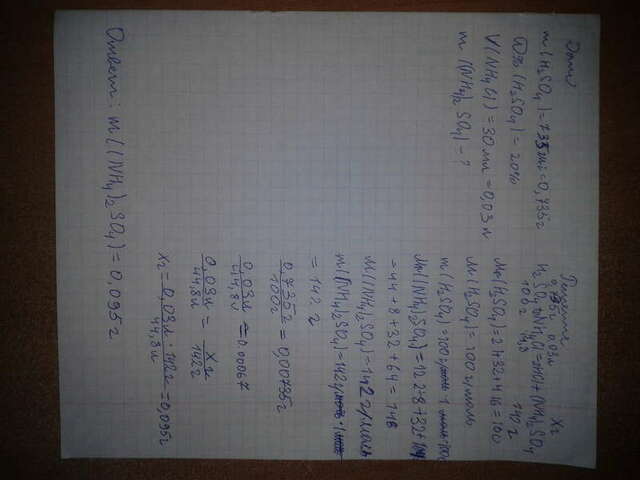 Дано
m(H₂SO₄) = 735 мг = 0,735 г
ω% (H₂SO₄) = 20%
V(NH₄Cl) = 30 мл = 0,03 л
m((NH₄)₂SO₄) = ?
Решение
0,735г 0,03л xг
H₂SO₄ + NH₄Cl = HCl + (NH₄)₂SO₄
100г 44,8 142г
Mr(H₂SO₄) = 2+32+4·16 = 100
M(H₂SO₄) = 100 г/моль
m(H₂SO₄) = 100 г/моль · 1 моль = 100г
= 44+8+32+64 = 148
M((NH₄)₂SO₄) = 142 г/моль
m((NH₄)₂SO₄) = 142 г/моль · 1 моль
= 142 г
0,735г / 100г = 0,00735г
0,03л / 44,8л = 0.00067
0,03л / 44,8л = xг / 142г
xг = 0,03л · 142г / 44,8л = 0,095г
Ответ: m((NH₄)₂SO₄) = 0,095 г